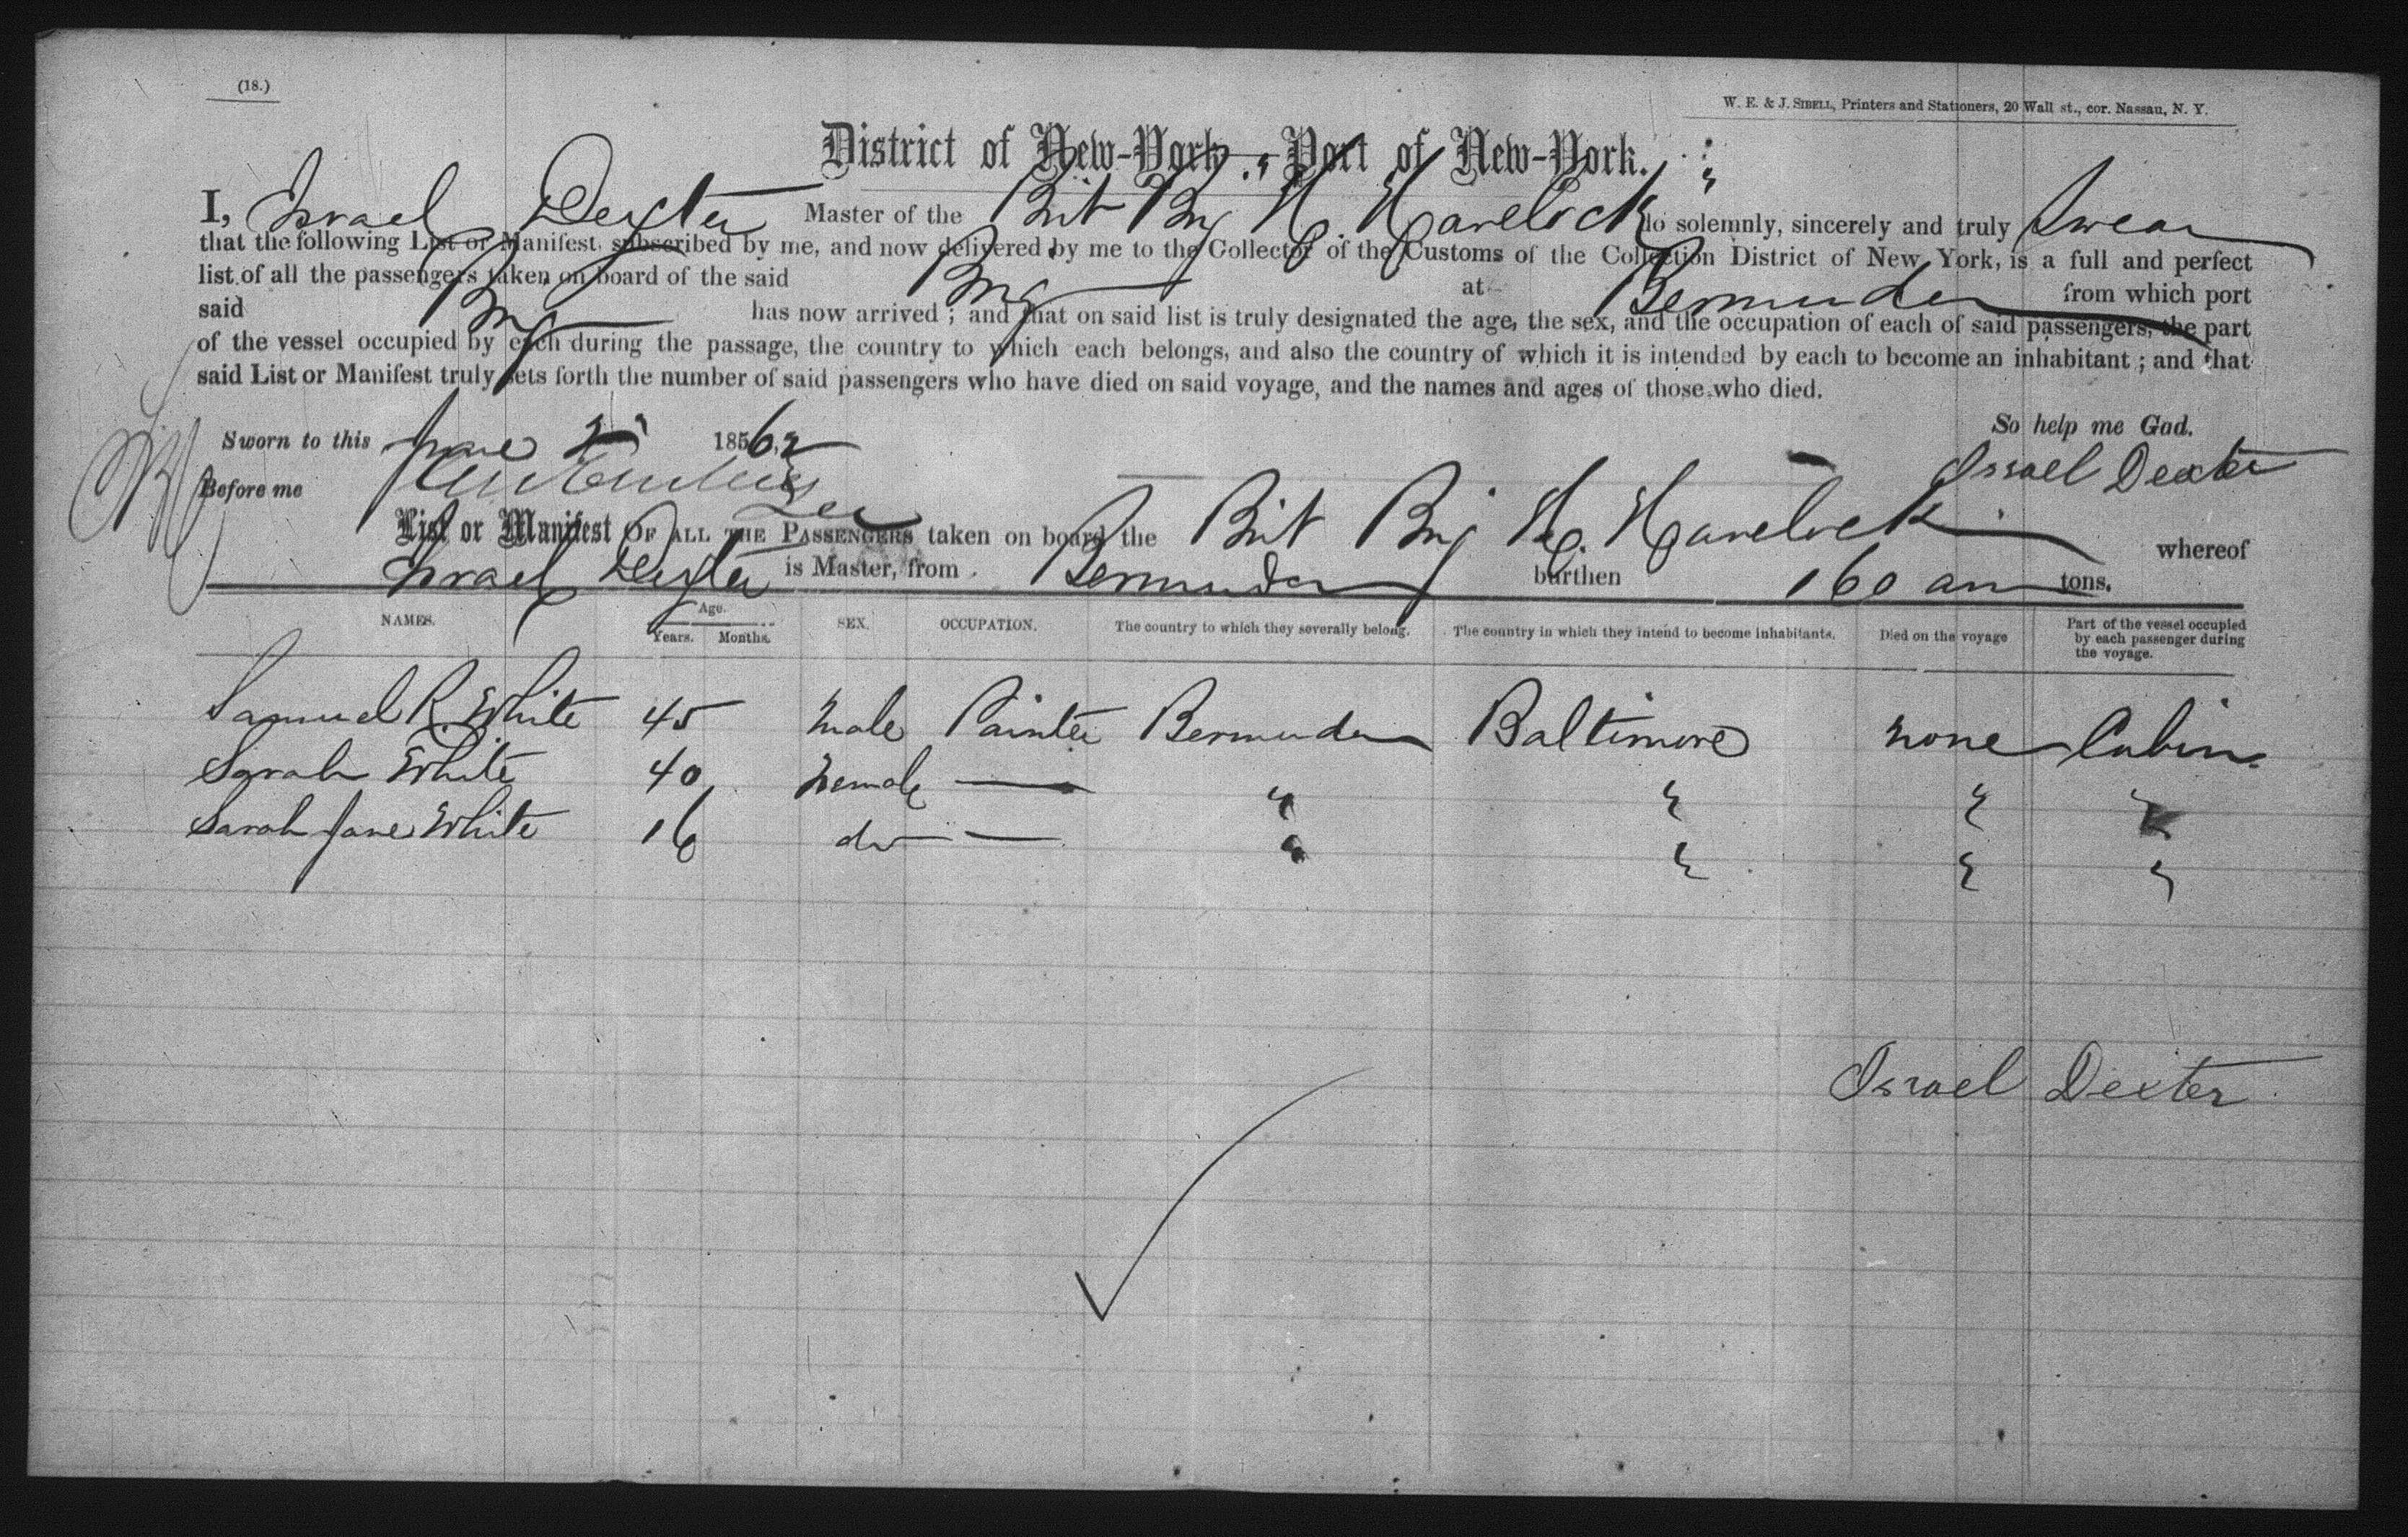 (18.)
W. E. & J. SIBELL, Printers and Stationers, 20 Wall st., cor. Nassau, N. Y.
District of New-York—Port of New-York.
I, Israel Dexter Master of the Brit Brig H. Havelock do solemnly, sincerely and truly swear
that the following List or Manifest, subscribed by me, and now delivered by me to the Collector of the Customs of the Collection District of New York, is a full and perfect
list of all the passengers taken on board of the said Brig at Bermuda from which port
said Brig has now arrived ; and that on said list is truly designated the age, the sex, and the occupation of each of said passengers, the part
of the vessel occupied by each during the passage, the country to which each belongs, and also the country of which it is intended by each to become an inhabitant ; and that
said List or Manifest truly sets forth the number of said passengers who have died on said voyage, and the names and ages of those who died.
So help me God.
Sworn to this June 1856,2
Israel Dexter
Before me
List or Manifest OF ALL THE PASSENGERS taken on board the Brit Brig H. Havelock whereof
Israel Dexter is Master, from Bermuda burthen 160 tons.
NAMES. Age. Years. Months. SEX. OCCUPATION. The country to which they severally belong. The country in which they intend to become inhabitants. Died on the voyage Part of the vessel occupied by each passenger during the voyage.
Samuel R. White 45 Male Painter Bermuda Baltimore none Cabin
Sarah White 40 Female — " " " "
Sarah Jane White 16 do — " " " "
Israel Dexter